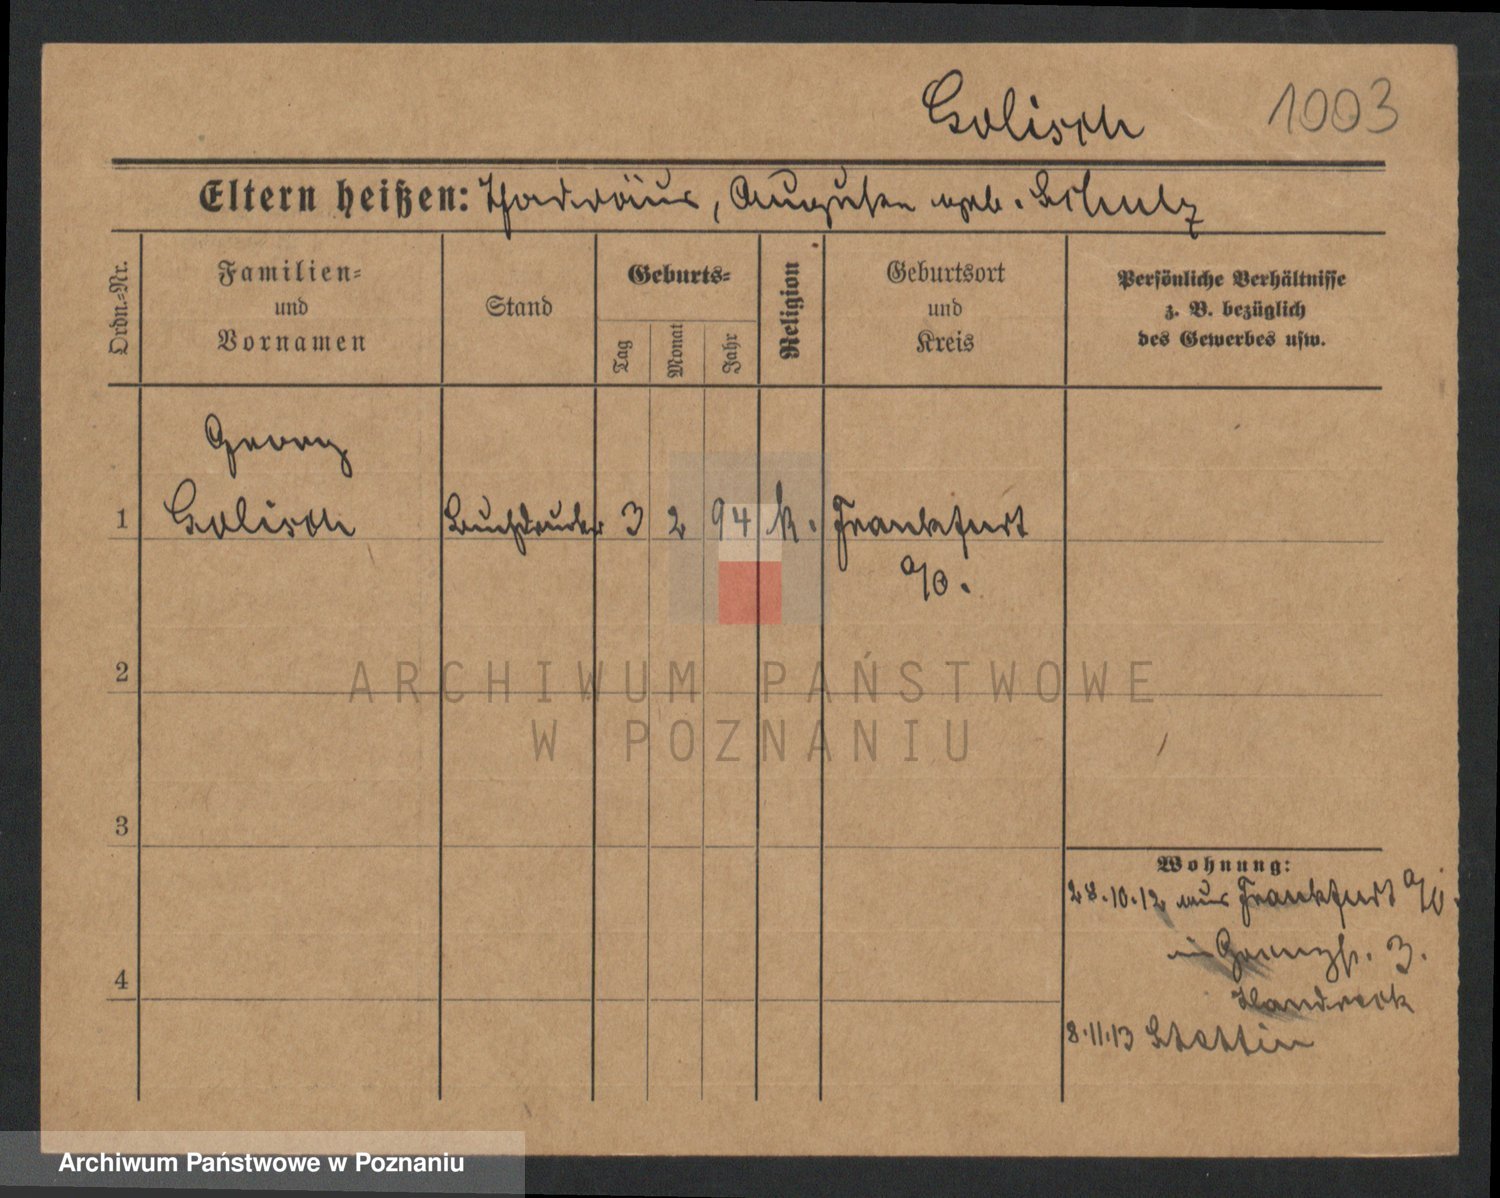 Golisch 1003
Eltern heißen: Thadräus, Auguste geb. Schulz
Ordn.=Nr.
Familien=
und
Vornamen
Stand
Geburts=
Tag
Monat
Jahr
Religion
Geburtsort
und
Kreis
Persönliche Verhältnisse
z. B. bezüglich
des Gewerbes usw.
Georg
1 Golisch Buchdrucker 3 2 94 k. Frankfurt
a/O.
2
ARCHIWUM PAŃSTWOWE
W POZNANIU
3
Wohnung:
28.10.12 aus Frankfurt a/O.
4
8.11.13 Stettin
Archiwum Państwowe w Poznaniu